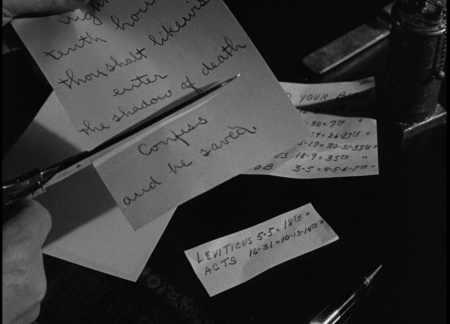 tenth hou
thou shalt likewis
enter
the shadow of death
Confess
and be saved
YOUR
30=7TH "
18-9=35TH "
3-5=4-5-6-7TH "
LEVITICUS 5-5=18TH "
ACTS 16-31=10-13-14TH "